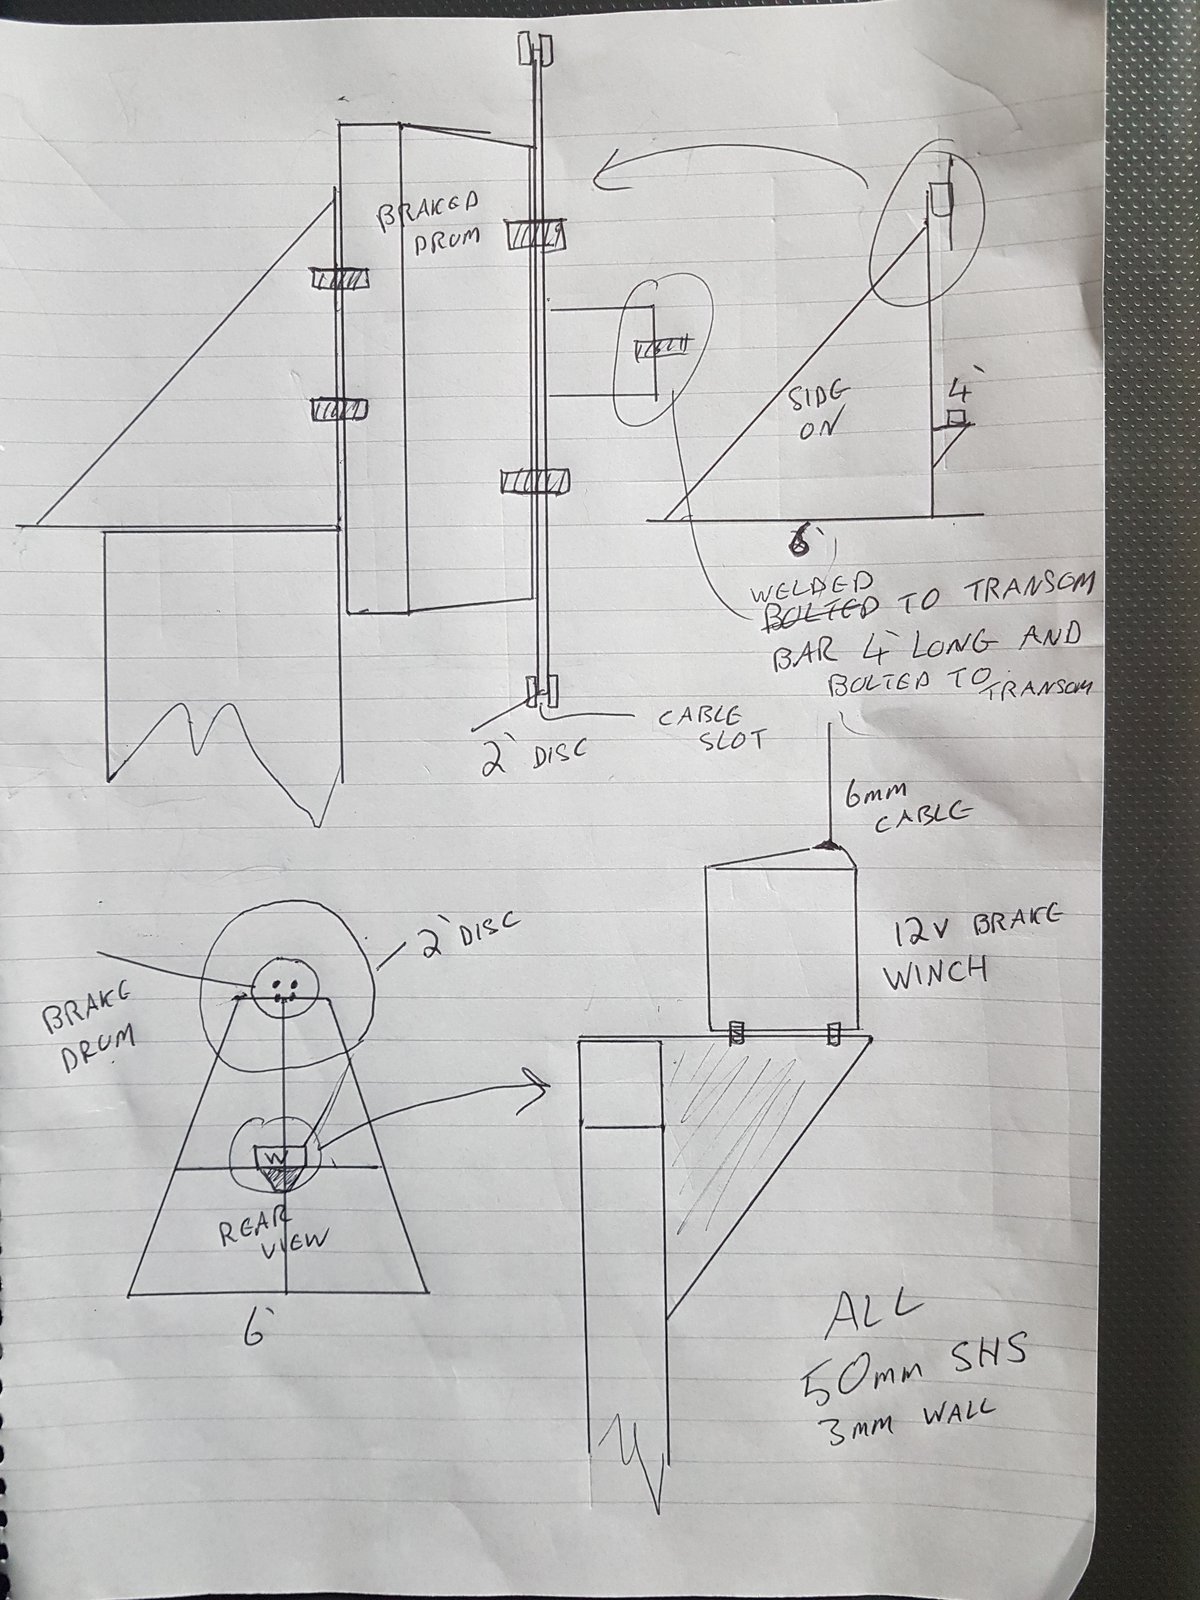 BRAKED
DRUM
SIDE
ON
4'
6'
WELDED
BOLTED TO TRANSOM
BAR 4' LONG AND
BOLTED TO TRANSOM
CABLE
SLOT
2' DISC
6mm
CABLE
12V BRAKE
WINCH
2' DISC
BRAKE
DRUM
W
REAR
VIEW
6'
ALL
50mm SHS
3mm WALL